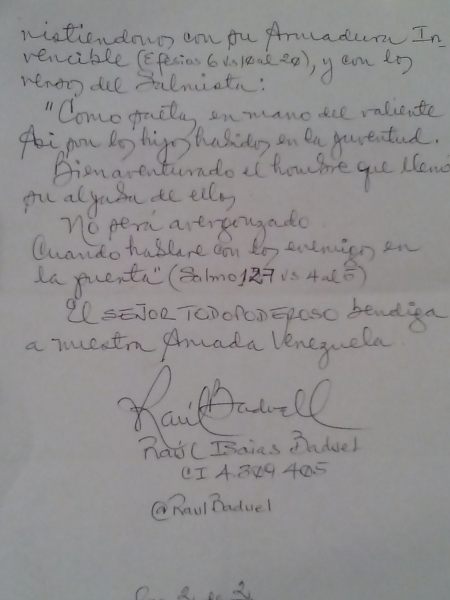 vistiendonos con su Armadura In-
vencible (Efesios 6 vs 10 al 20), y con los
versos del Salmista:
"Como saetas en mano del valiente
Asi son los hijos habidos en la juventud.
Bienaventurado el hombre que llenó
su aljaba de ellos
No será avergonzado
Cuando hablare con los enemigos en
la puerta" (Salmo 127 vs 4 al 5)
El SEÑOR TODOPODEROSO bendiga
a nuestra Amada Venezuela.
Raúl Baduell
Raúl Isaias Baduel
CI 4.309.405
@RaulBaduel
2 de 2